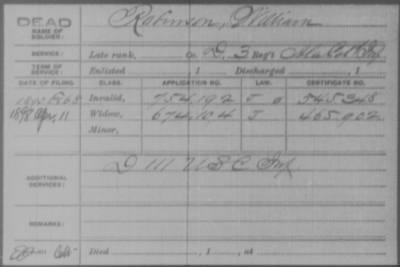 DEAD
NAME OF SOLDIER: Robinson, William
SERVICE: Late rank, Co. D, 3 Reg't Inf
TERM OF SERVICE: Enlisted 1 Discharged , 1
DATE OF FILING. CLASS. APPLICATION NO. LAW. CERTIFICATE NO.
Invalid, 754.192 545348
Apr, 11 Widow, 674.104 465.902
Minor,
ADDITIONAL SERVICES: D 111 U S C Inf
REMARKS:
Died , 1 , at